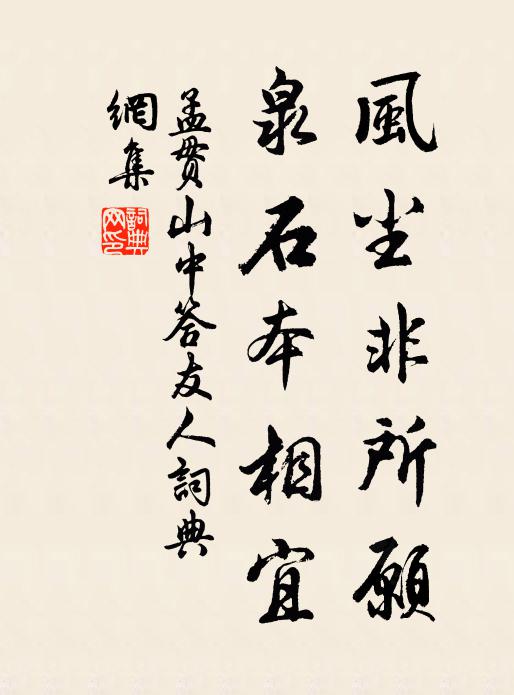 風尘非所願
泉石本相宜
孟贯山中答友人詞典
網集
詞典
网印